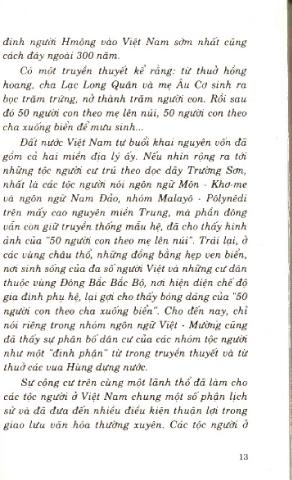 đình người Hmông vào Việt Nam sớm nhất cũng
cách đây ngoài 300 năm.
Có một truyền thuyết kể rằng: từ thuở hồng
hoang, cha Lạc Long Quân và mẹ Âu Cơ sinh ra
bọc trăm trứng, nở thành trăm người con. Rồi sau
đó 50 người con theo mẹ lên núi, 50 người con theo
cha xuống biển để mưu sinh...
Đất nước Việt Nam tự buổi khai nguyên vốn đã
gồm cả hai miền địa lý ấy. Nếu nhìn rộng ra tới
những tộc người cư trú theo dọc dãy Trường Sơn,
nhất là các tộc người nói ngôn ngữ Môn - Khơ-me
và ngôn ngữ Nam Đảo, nhóm Malayô - Pôlynêdi
trên mấy cao nguyên miền Trung, mà phần đông
vẫn còn giữ truyền thống mẫu hệ, đã cho thấy hình
ảnh của "50 người con theo mẹ lên núi". Trái lại, ở
các vùng châu thổ, những đồng bằng hẹp ven biển,
nơi sinh sống của đa số người Việt và những cư dân
thuộc vùng Đông Bắc Bắc Bộ, nơi hiện diện chế độ
gia đình phụ hệ, lại gợi cho thấy bóng dáng của "50
người con theo cha xuống biển". Cho đến nay, chỉ
nói riêng trong nhóm ngôn ngữ Việt - Mường cũng
đã thấy sự phân bố dân cư của các nhóm tộc người
như một "định phận" từ trong truyền thuyết và từ
thuở các vua Hùng dựng nước.
Sự cộng cư trên cùng một lãnh thổ đã làm cho
các tộc người ở Việt Nam chung một số phận lịch
sử và đã đưa đến nhiều điều kiện thuận lợi trong
giao lưu văn hóa thường xuyên. Các tộc người ở
13